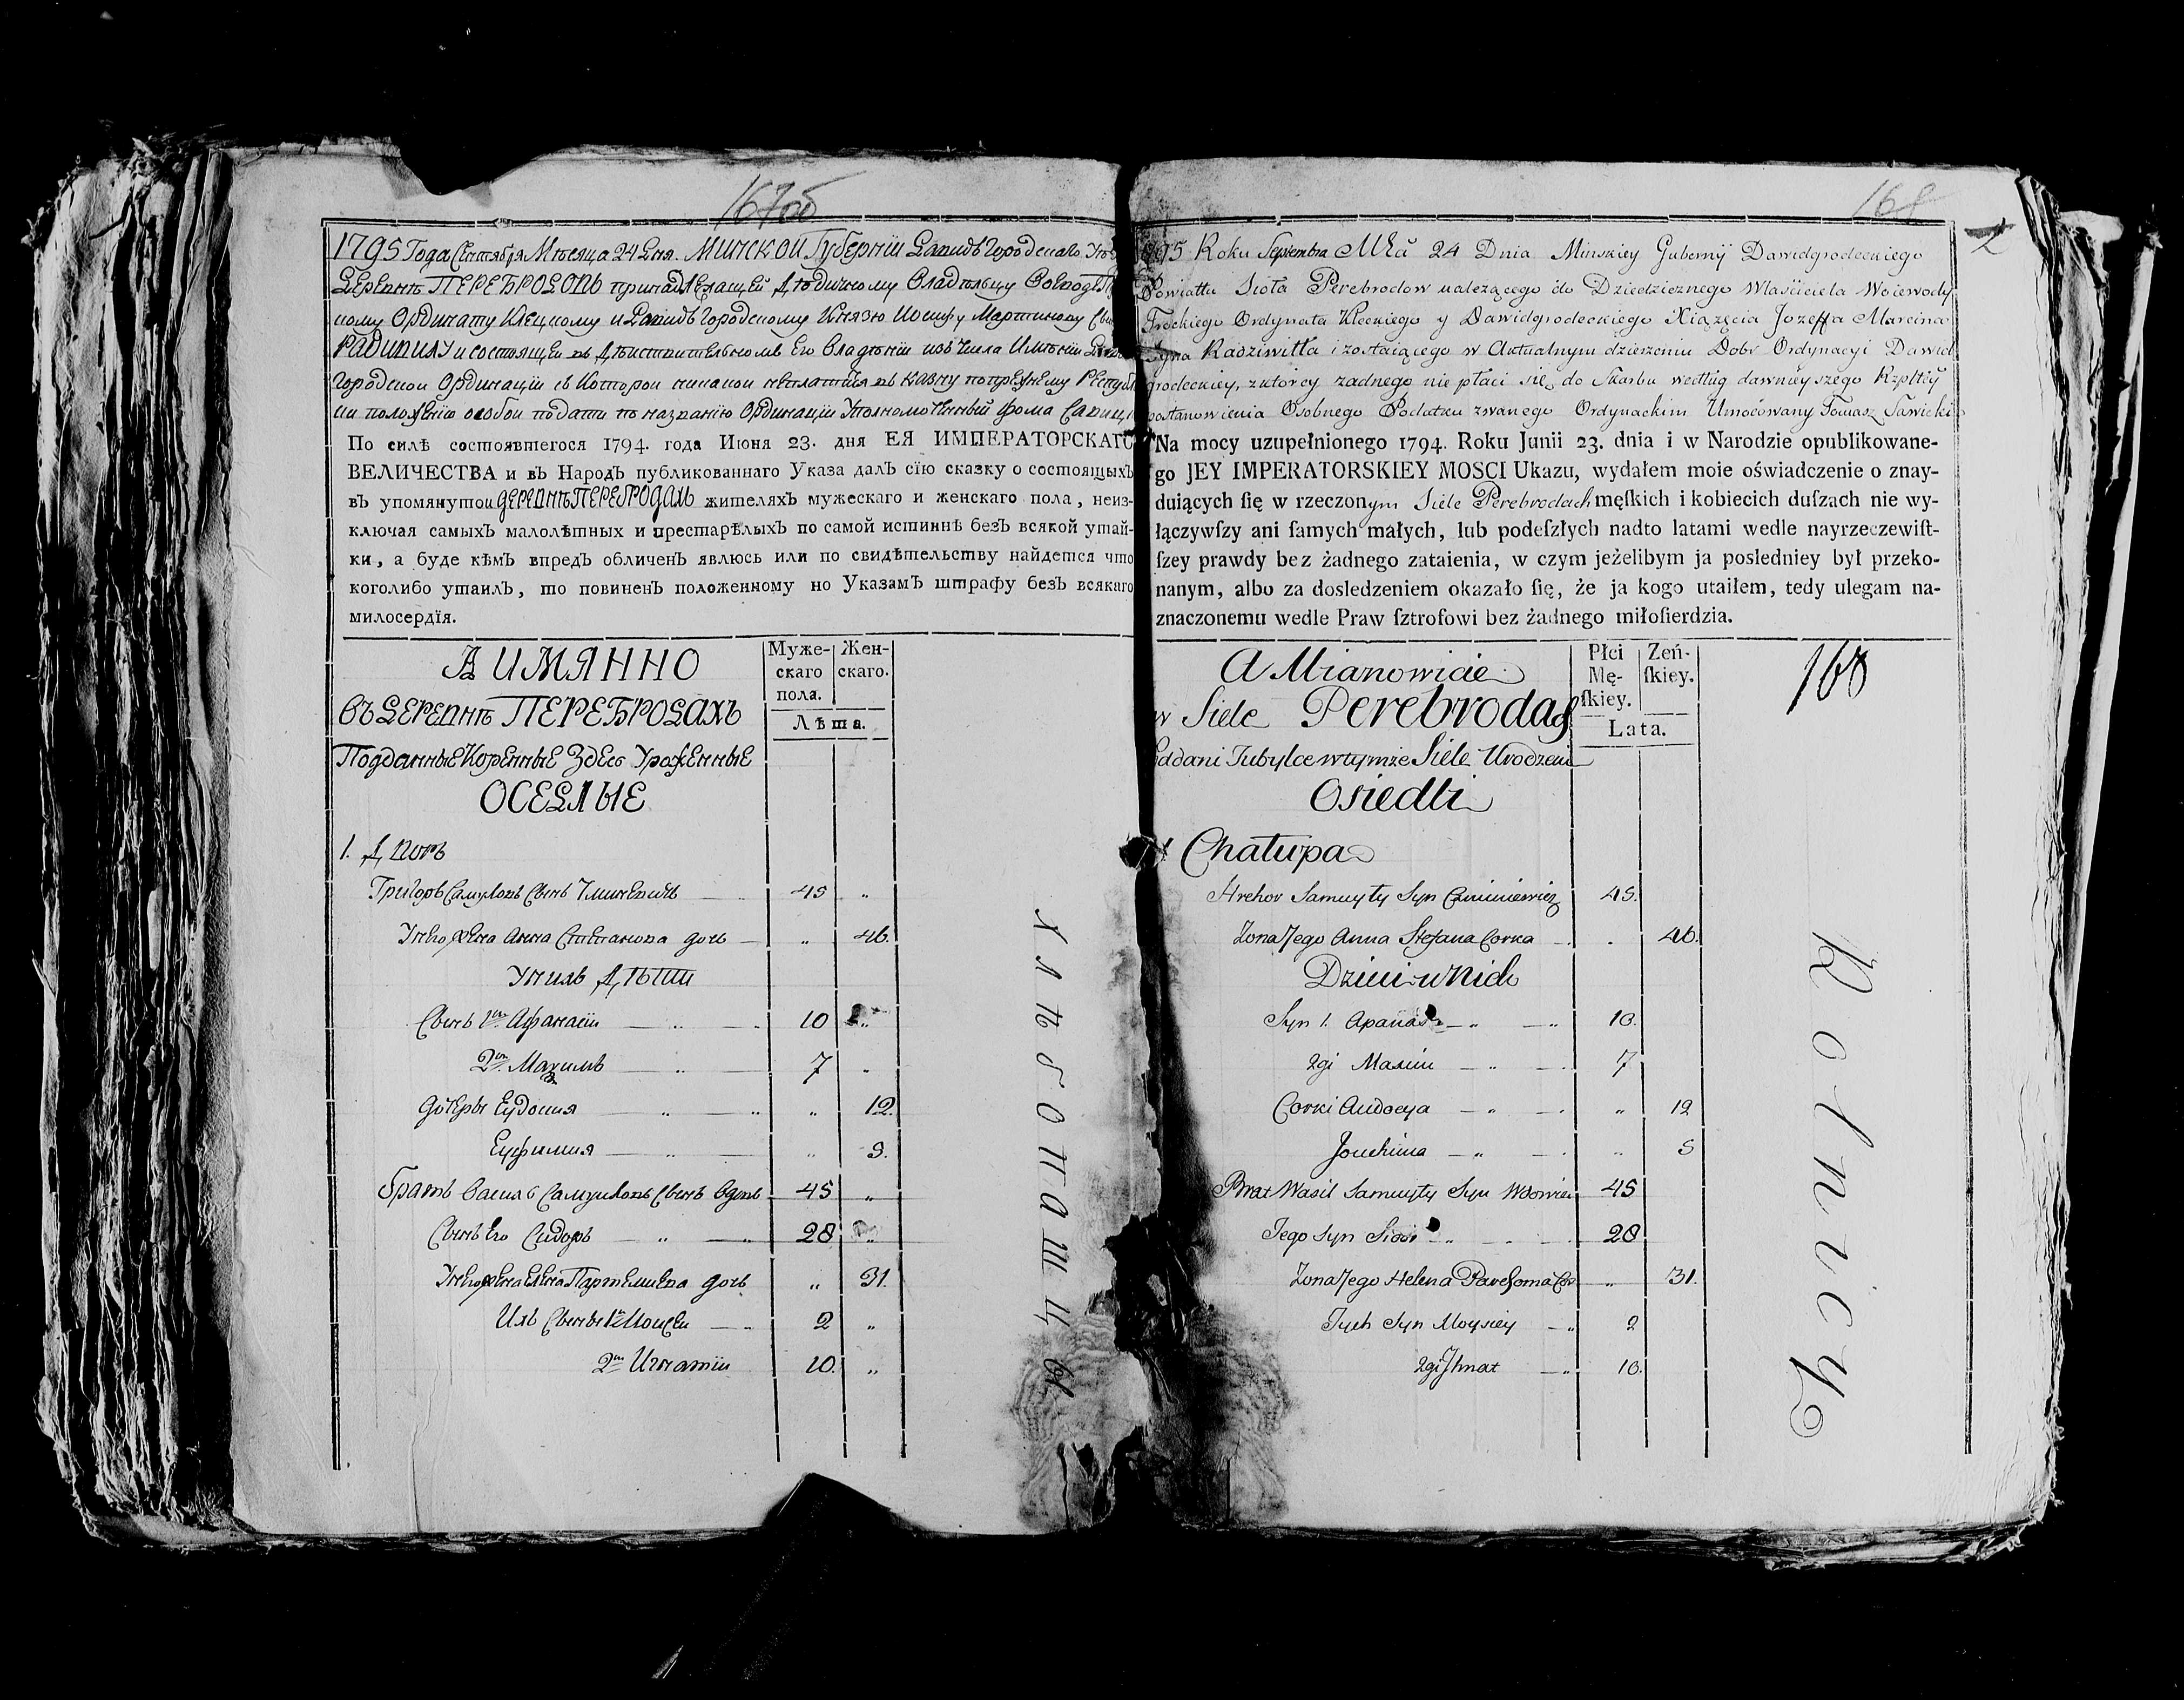 167об
1795 Года Сентября Мѣсяца 24 Дня. Минской Губернїи Давидъ Городецкаго
Деревнѣ ПЕРЕБРОДОВЪ принадлежащей Дѣдичному Владѣльцу Воеводѣ
кому Ординату Клецкому и Давидъ Городскому Князю Иосифу Мартинову
РАДИВИЛУ и состоящей въ Дѣиствительномъ Его Владѣнїи изъ числа Имѣнїи
Городской Ординацїи съ Которой никакой неплатится въ Казну попрежнему
положенїю особой подати по названїю Ординацїи Уполномоченный Фома
По силѣ состоявшегося 1794. года Июня 23. дня ЕЯ ИМПЕРАТОРСКАГО
ВЕЛИЧЕСТВА и въ Народъ публикованнаго Указа далъ сїю сказку о состоящыхъ
въ упомянутои ДЕРЕВНѢ ПЕРЕБРОДАХЪ жителяхъ мужескаго и женскаго пола, неиз-
ключая самыхъ малолѣтныхъ и престарѣлыхъ по самой истиннѣ безъ всякой утай-
ки, а буде кѣмъ впредъ обличенъ явлюсь или по свидѣтельству найдется что
коголибо утаилъ, то повиненъ положенному по Указамъ штрафу безъ всякаго
милосердїя.
А ИМЯННО
Муже-
скаго
пола.
Жен-
скаго.
Лѣта.
ВЪ ДЕРЕВНѢ ПЕРЕБРОДАХЪ
Подданные Коренные Здесь Урожденные
ОСЕДЛЫЕ
1. Дворъ
Григоръ Самуиловъ Сынъ 45 „
У него жена Анна Степанова дочь „ 46.
У нихъ Дѣти
Сынъ 1й Афанасїи 10 „
2й Махимъ 7 „
дочеры Еудокия „ 12.
Еуфимия „ 9.
братъ Василъ Самуиловъ Сынъ Вдовъ 45 „
Сынъ Его Сидоръ 28 „
У него жена Елена Партемиева дочь „ 31.
Ихъ Сыны 1й Моисеи 2 „
2й Игнатїи 10. „
Хлѣбопашцы
168
1795 Roku Septembra Mca 24 Dnia Minskiey Gubernij Dawidgrodeckiego
Powiattu Siola Perebrodow nalezącego do Dziedzicznego Właściciela Woiewody
Trockiego Ordynata Kleckiego y Dawidgrodeckiego Xiązęcia Jozeffa Marcina
Syna Radziwiłła i zostaiącego w Aktualnym dzierzeniu Dobr Ordynacyi Dawid
grodeckiey, zktorey zadnego nie płaci się do Skarbu według dawnieyszego Rzpltey
postanowienia Osobnego Podatku zwanego Ordynackim Umocowany Tomasz Sawicki
Na mocy uzupełnionego 1794. Roku Junii 23. dnia i w Narodzie opublikowane-
go JEY IMPERATORSKIEY MOSCI Ukazu, wydałem moie oświadczenie o znay-
duiących ſię w rzeczonym Siele Perebrodach męſkich i kobiecich duſzach nie wy-
łączywſzy ani ſamych małych, lub podeſzłych nadto latami wedle nayrzeczewiſt-
ſzey prawdy bez żadnego zataienia, w czym jeżelibym ja posledniey był przeko-
nanym, albo za dosledzeniem okazało ſię, że ja kogo utaiłem, tedy ulegam na-
znaczonemu wedle Praw ſztrofowi bez żadnego miłoſierdzia.
A Mianowicie
Płci
Mę-
ſkiey.
Zeń-
ſkiey.
Lata.
168
w Siele Perebrodach
Poddani Tubylce w tymze Siele Urodzeni
Osiedli
1 Chałupa
Hrehor Samuyły Syn 45.
Zona Jego Anna Stefana Corka „ 46.
Dzieci u Nich
Syn 1. Apanas 10.
2gi Maxim 7
Corki Audocya „ 12
Jouchima „ 9
Brat Wasil Samuyły Syn Wdowiec 45
Jego Syn Sidor 28
Zona Jego Helena „ 31.
Jych Syn Moysiey 2
2gi Jhnat 10.
Rolnicy